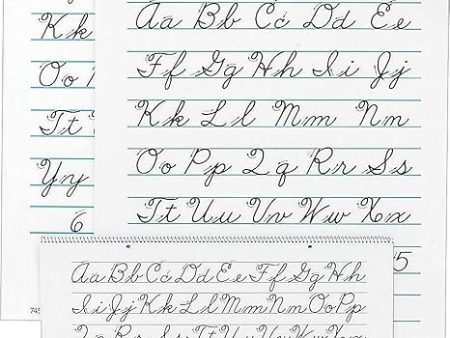 Kk
Oo
Tt
Yy
6
745
Aa Bb Cc Dd Ee
Ff Gg Hh Ii Jj
Kk Ll Mm Nn
Oo Pp Qq Rr Ss
Tt Uu Vv Ww Xx
5
Aa Bb Cc Dd Ee Ff Gg Hh
Ii Jj Kk Ll Mm Nn Oo Pp
Qq Rr Ss Tt Uu Vv Ww Xx